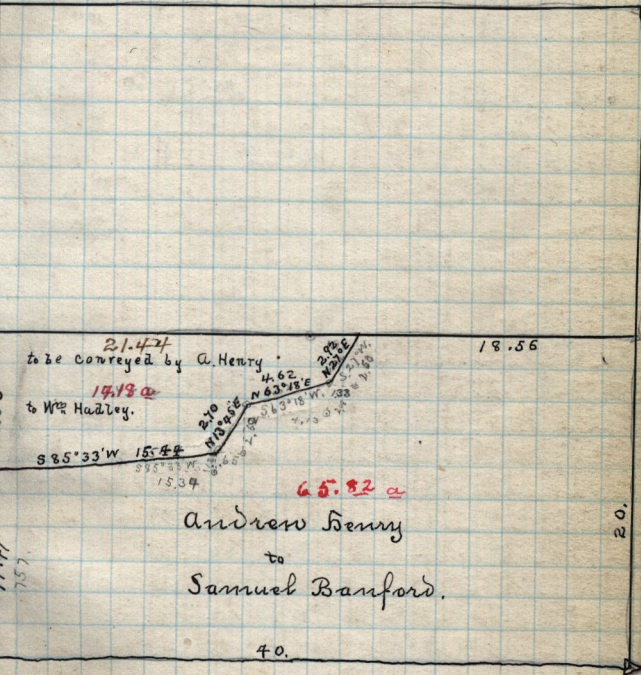 21.44
18.56
to be conveyed by A. Henry
17.18 a
to Wm Hadley.
2.92
N 27° E
4.62
N 63° 18' E
S 63° 18' W.
2.70
N 13° 45 E
S 85° 33' W 15.44
S 85° 33' W.
15.34
65.82 a
Andrew Henry
to
Samuel Banford.
20.
40.
757.